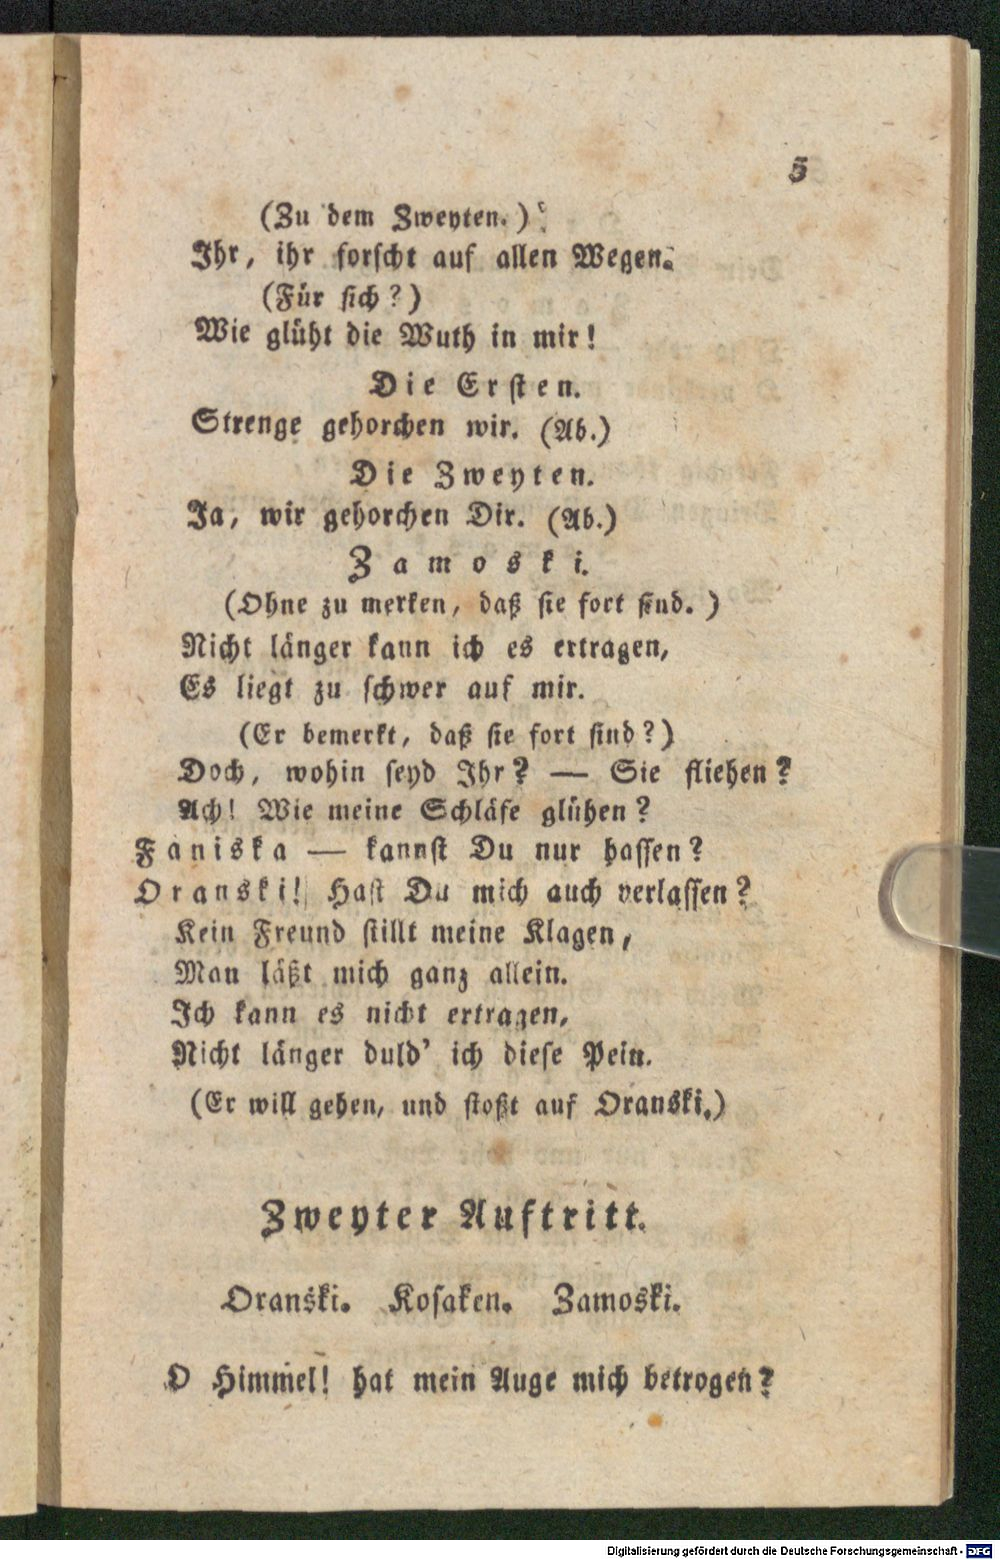 5
(Zu dem Zweyten.)
Ihr, ihr forscht auf allen Wegen.
(Für sich?)
Wie glüht die Wuth in mir!
Die Ersten.
Strenge gehorchen wir. (Ab.)
Die Zweyten.
Ja, wir gehorchen Dir. (Ab.)
Zamoski.
(Ohne zu merken, daß sie fort sind.)
Nicht länger kann ich es ertragen,
Es liegt zu schwer auf mir.
(Er bemerkt, daß sie fort sind?)
Doch, wohin seyd Ihr? — Sie fliehen?
Ach! Wie meine Schläfe glühen?
Faniska — kannst Du nur hassen?
Oranski! Hast Du mich auch verlassen?
Kein Freund stillt meine Klagen,
Man läßt mich ganz allein.
Ich kann es nicht ertragen,
Nicht länger duld' ich diese Pein.
(Er will gehen, und stoßt auf Oranski.)
Zweyter Auftritt.
Oranski. Kosaken. Zamoski.
O Himmel! hat mein Auge mich betrogen?
Digitalisierung gefördert durch die Deutsche Forschungsgemeinschaft - DFG